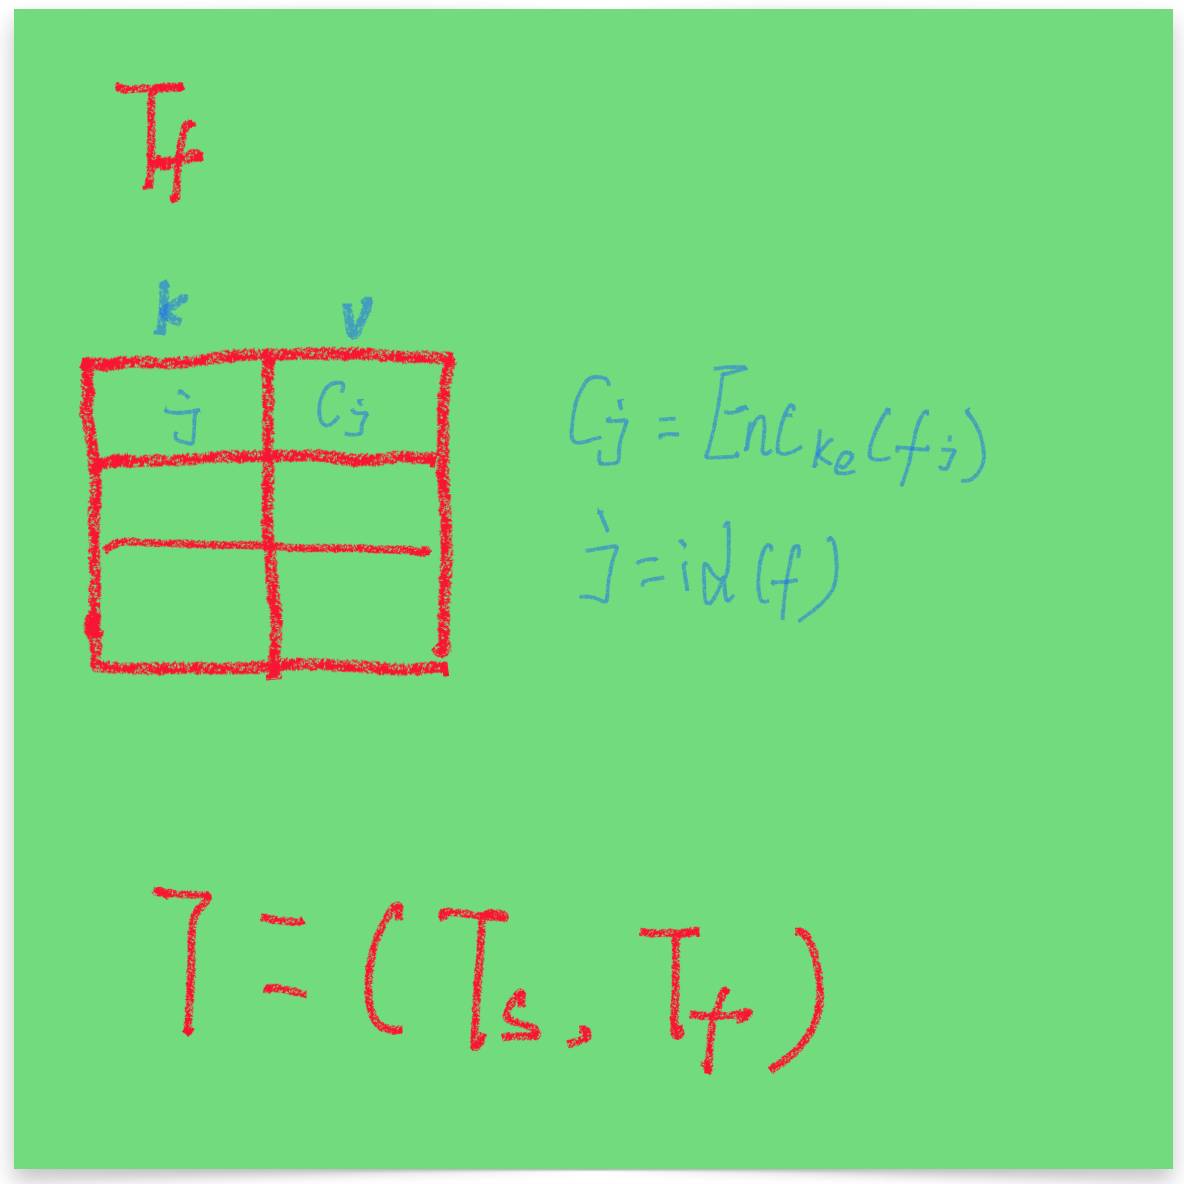 T_f
k v
j C_j
C_j = Enc_{k_e}(f_j)
j = id(f)
T = (T_s, T_f)